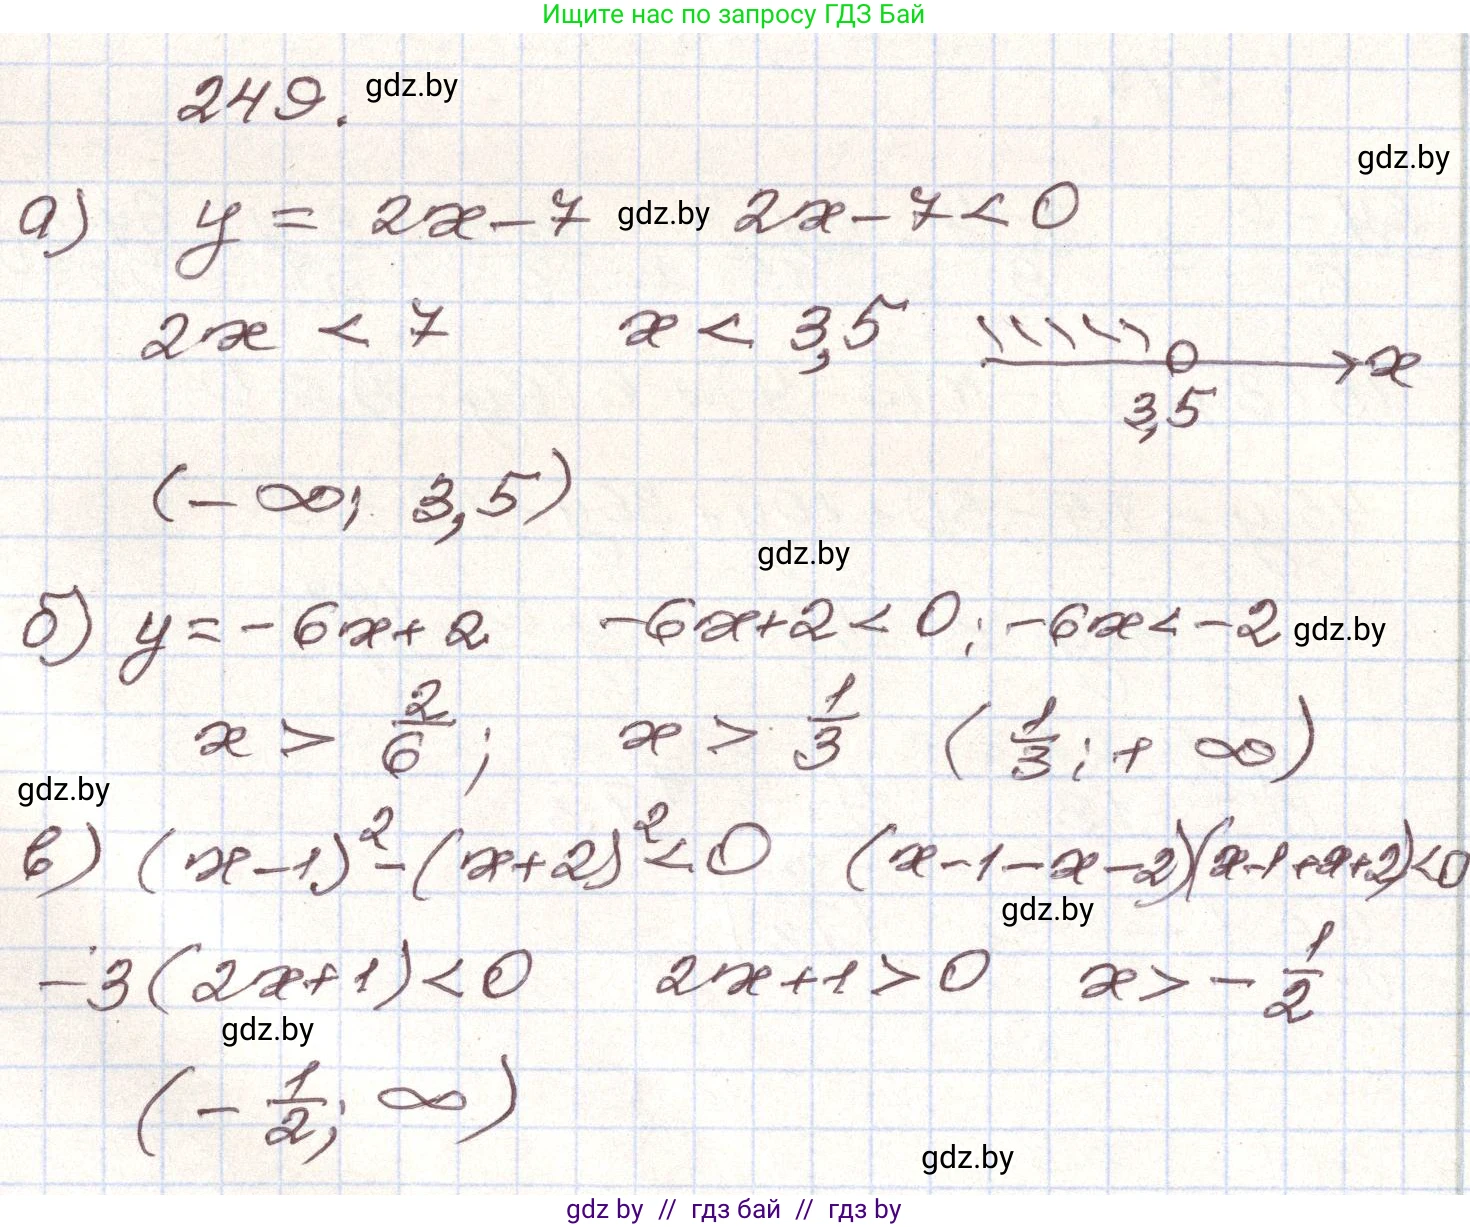 Ищите нас по запросу ГДЗ Бай
249. gdz.by
gdz.by
а) y = 2x - 7 gdz.by 2x - 7 < 0
2x < 7 x < 3,5 x
3,5
(- ∞; 3,5)
gdz.by
б) y = - 6x + 2 -6x + 2 < 0; -6x < -2 gdz.by
x > 2/6; x > 1/3 (1/3; + ∞)
gdz.by
в) (x - 1)² - (x + 2)² < 0 (x - 1 - x - 2)(x - 1 + x + 2) < 0
gdz.by
-3(2x + 1) < 0 2x + 1 > 0 x > - 1/2
gdz.by
(- 1/2; ∞)
gdz.by
gdz by // гдз бай // гдз by